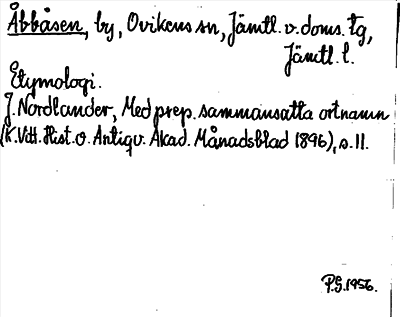 Åbbåsen, by, Ovikens sn, Jämtl. v. doms. tg,
Jämtl. l.
Etymologi.
J. Nordlander, Med prep. sammansatta ortnamn
(K. Vitt. Hist. o. Antiqv. Akad. Månadsblad 1896), s. 11.
P.G. 1956.